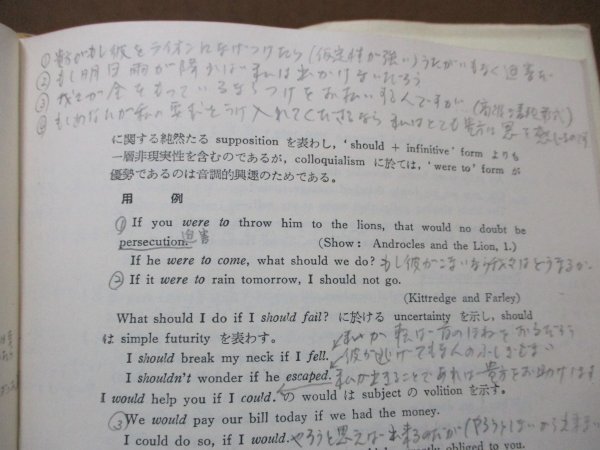 ① 貴方がもし彼をライオンになげつけたら (仮定性が強い) うたがいもなく 迫害だ
② もし明日雨が降れば私は出かけないだろう
③ 我々が金をもっているならつけをお払いするんですが
④ もしあなたが私の要求をうけ入れてくださるなら 私はとても貴方に恩を感じるの
に関する純然たる supposition を表わし, 'should + infinitive' form よりも
一層非現実性を含むのであるが, colloquialism に於ては, 'were to' form が
優勢であるのは音調的興趣のためである。
用 例
① If you were to throw him to the lions, that would no doubt be
persecution. 迫害 (Show: Androcles and the Lion, 1.)
If he were to come, what should we do? もし彼が
② If it were to rain tomorrow, I should not go.
(Kittredge and Farley)
What should I do if I should fail? に於ける uncertainty を示し, should
は simple futurity を表わす。
I should break my neck if I fell. 私が 首のほねをおるだろう
I shouldn't wonder if he escaped. 彼が逃げても
I would help you if I could. の would は subject の volition を示す。 私が出きることであれば貴方をお助けします
③ We would pay our bill today if we had the money.
I could do so, if I would. やろうと思えば出来るのだが
obliged to you.